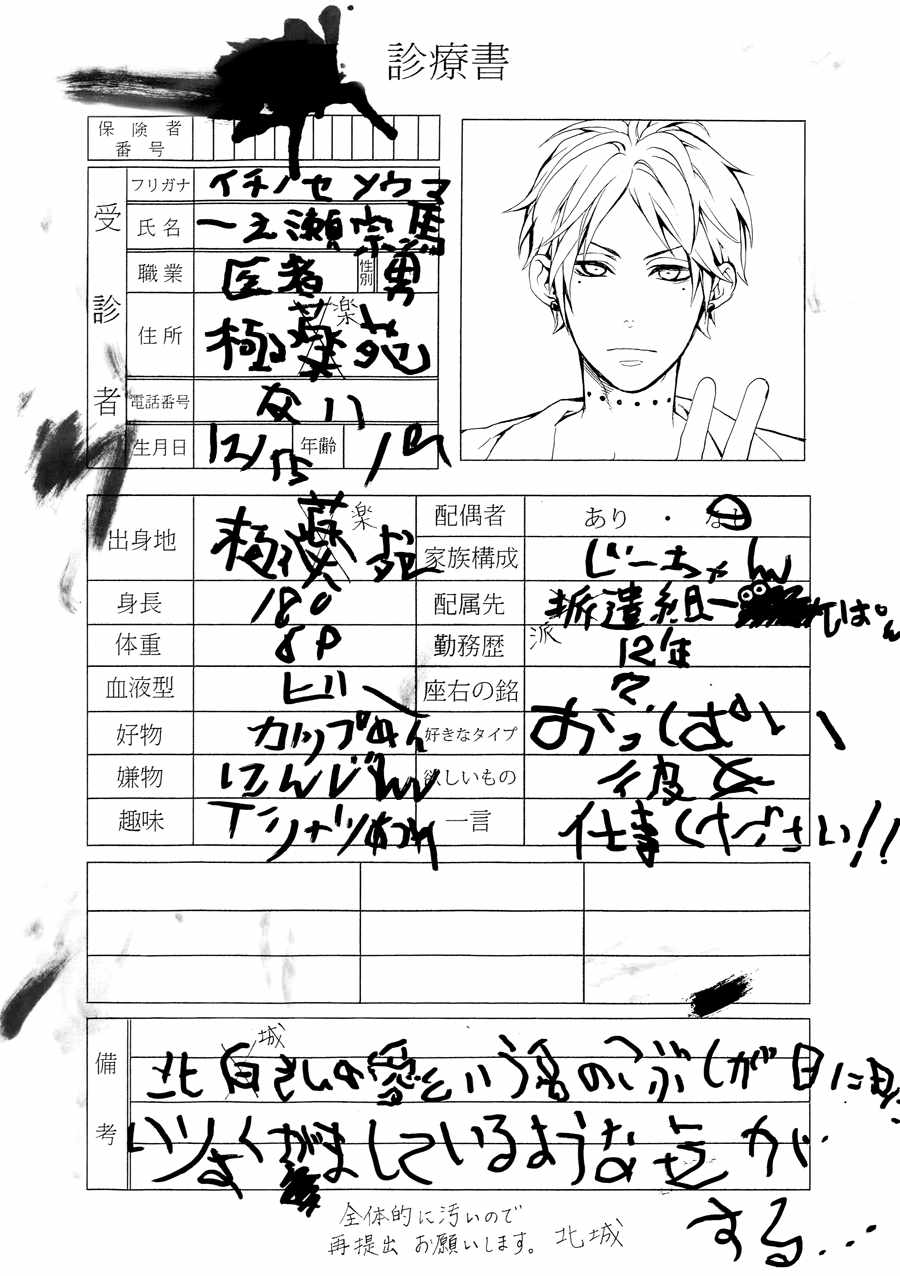 診療書
保険者番号
受診者
フリガナ イチノセ ソウマ
氏名 一之瀬宗馬
職業 医者 性別 男
住所 極薬苑 楽
電話番号 ない
生月日 12/15 年齢 19
出身地 極薬苑 楽
身長 180
体重
血液型 ビー
好物 カップめん
嫌物 にんじん
趣味 Tシャツあつめ
配偶者 あり ・ なし
家族構成 じーちゃん
配属先 派遣組一
派
勤務歴 12年
座右の銘 ?
好きなタイプ おっぱい
欲しいもの 彼女
一言 仕事ください!!
備考
城
北白さんの愛という名のこぶしが目に見
いりょくがましているような気が
する...
全体的に汚いので
再提出 お願いします。 北城